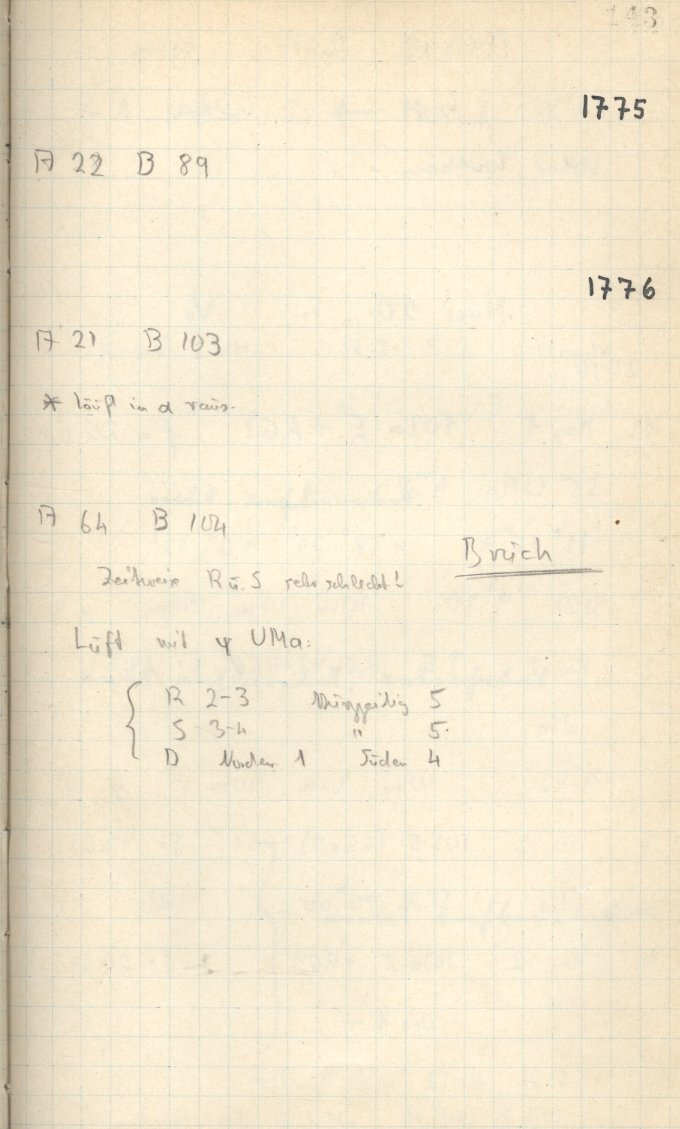 143
1775
A 22 B 89
1776
A 21 B 103
* läuft in α raus.
A 64 B 104
Bruch
Zeitweise R u. S sehr schlecht!
Luft mit ψ UMa:
R 2-3 5
S 3-4 " 5.
D Norden 1 Süden 4